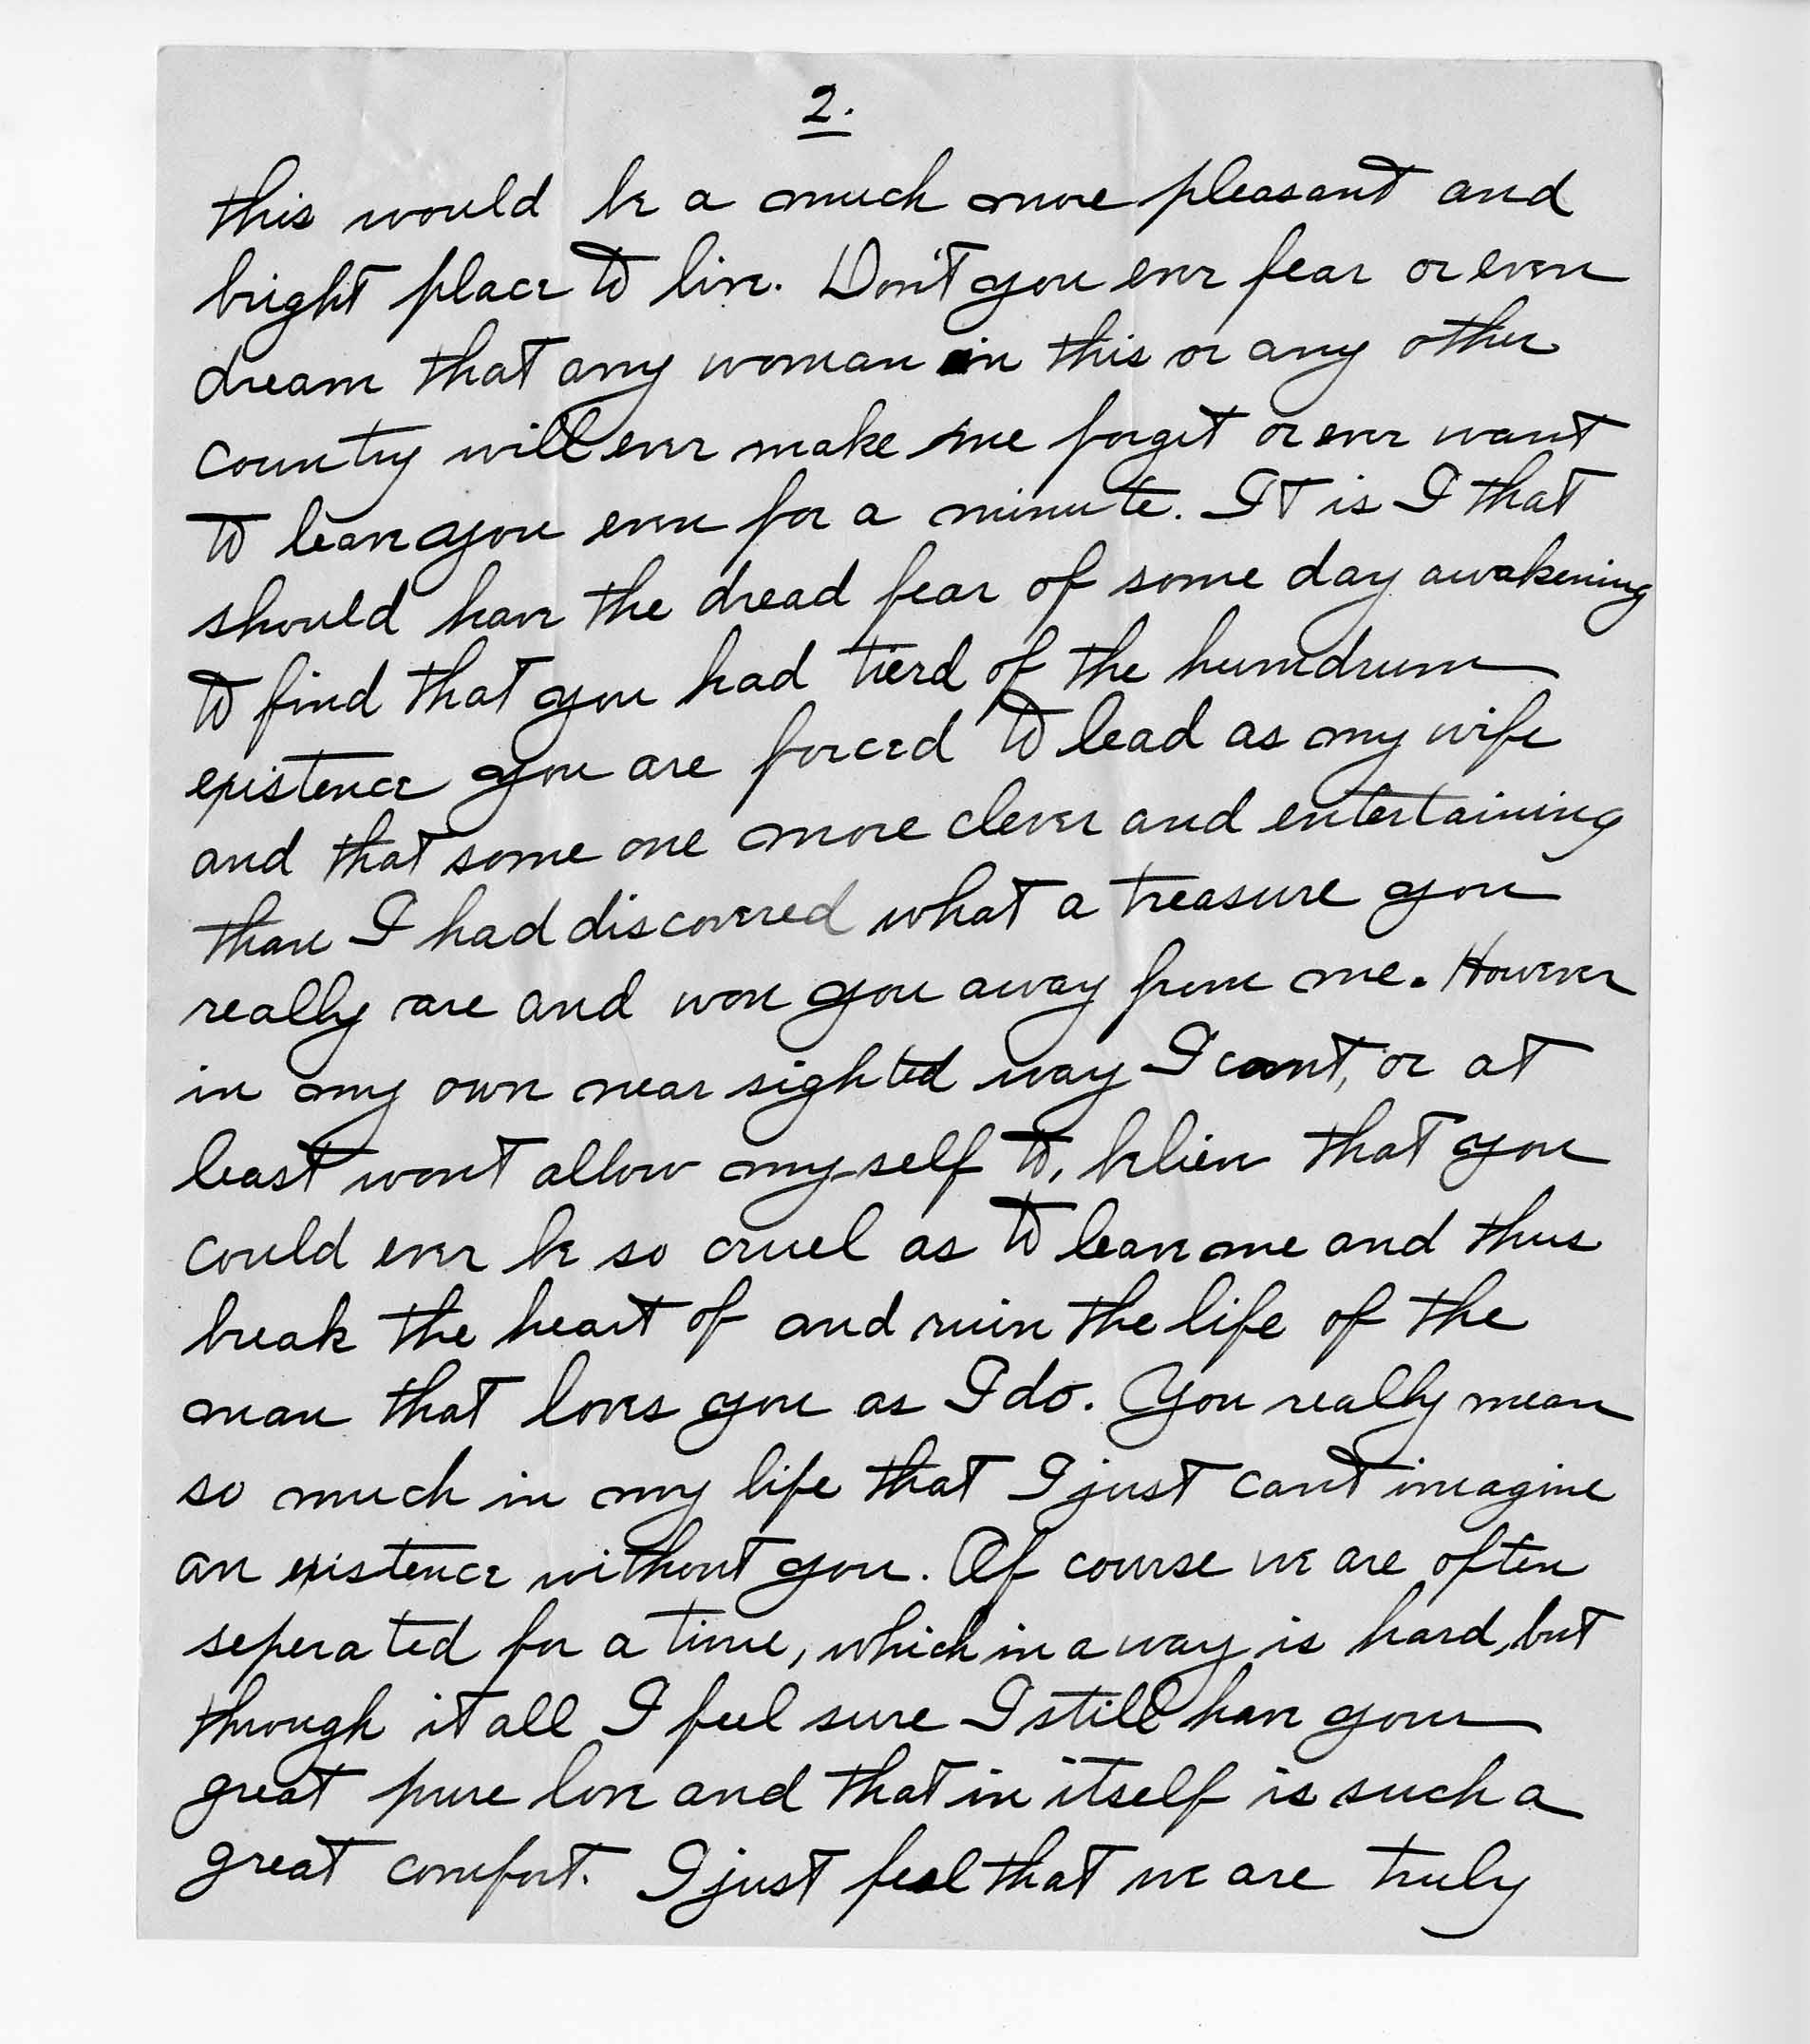 2.
this would be a much more pleasant and
bright place to live. Don't you ever fear or even
dream that any woman in this or any other
country will ever make me forget or ever want
to leave you even for a minute. It is I that
should have the dread fear of some day awakening
to find that you had tierd of the humdrum
existence you are forced to lead as my wife
and that some one more clever and entertaining
than I had discovered what a treasure you
really are and won you away from me. However
in my own near sighted way I cant, or at
least wont allow my self to, believe that you
could ever be so cruel as to leave me and thus
break the heart of and ruin the life of the
man that loves you as I do. You really mean
so much in my life that I just cant imagine
an existence without you. Of course we are often
seperated for a time, which in a way is hard, but
through it all I feel sure I still have your
great pure love and that in itself is such a
great comfort. I just feel that we are truly